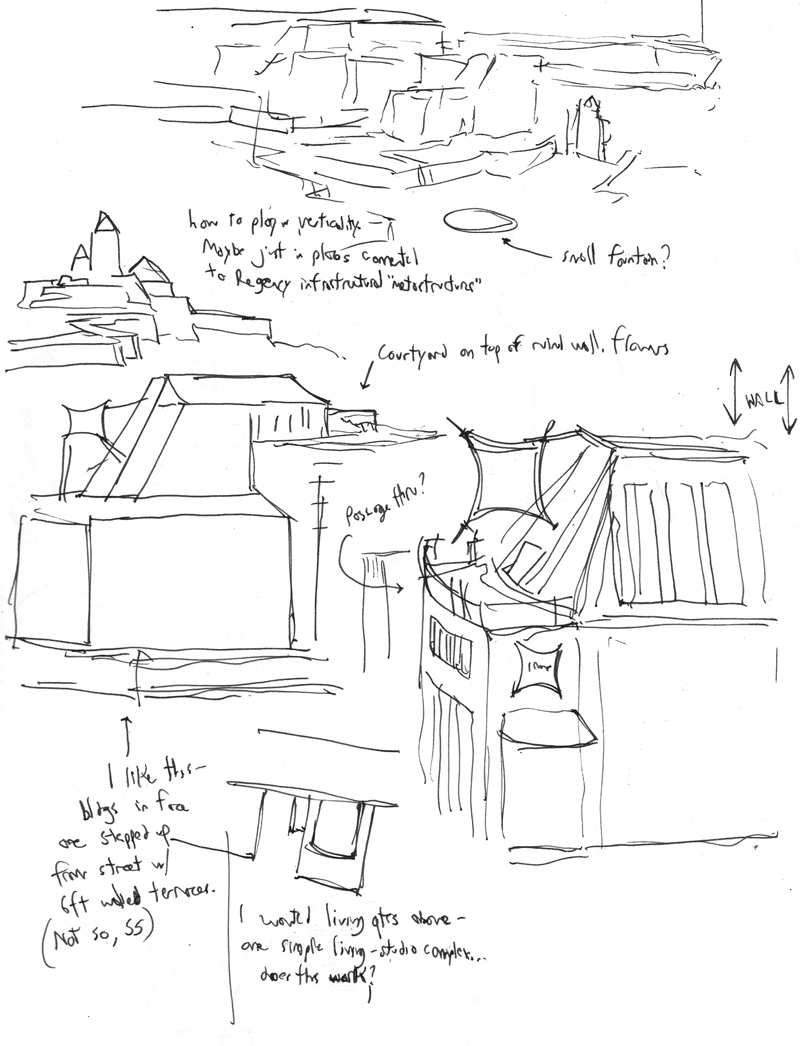 how to play w verticality -
Maybe just in places connected
to Regency infrastructural "metastructures"
small fountain?
Courtyard on top of ruind wall. Flowers
WALL
passage thru?
I like this-
bldgs in
are stepped up
from street w/
6ft walled terraces.
(Not so, SS)
I wanted living qtrs above -
one simple living-studio complex...
does this work?